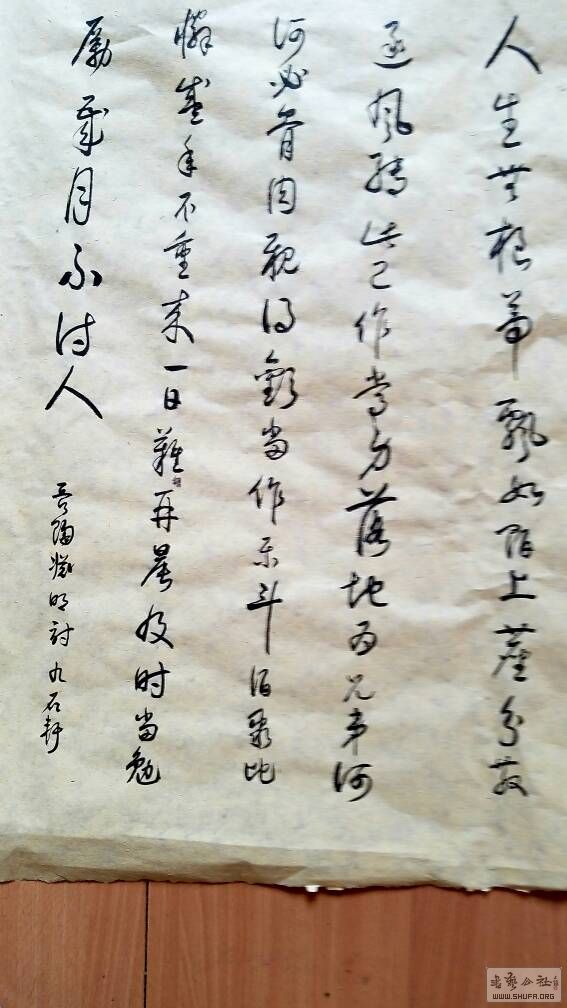 人生無根蒂飄如陌上塵分散
逐風轉此已作常身落地為兄弟何
何必骨肉親得歡當作樂斗酒聚比
隣盛年不重來一日難再晨及时當勉
勵歲月不待人
陶淵明詩 九石軒
书艺公社
WWW.SHUFA.ORG